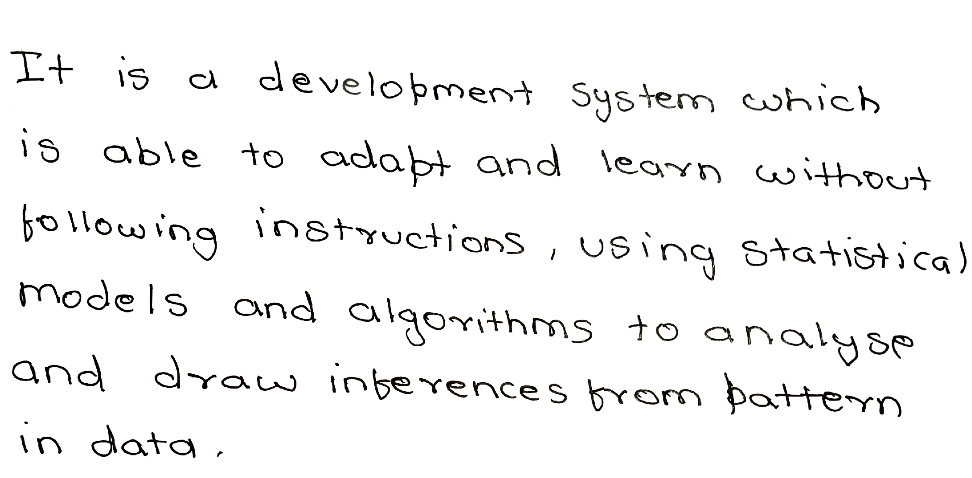 It is a development system which
is able to adapt and learn without
following instructions, using statistical
models and algorithms to analyse
and draw inferences from pattern
in data.